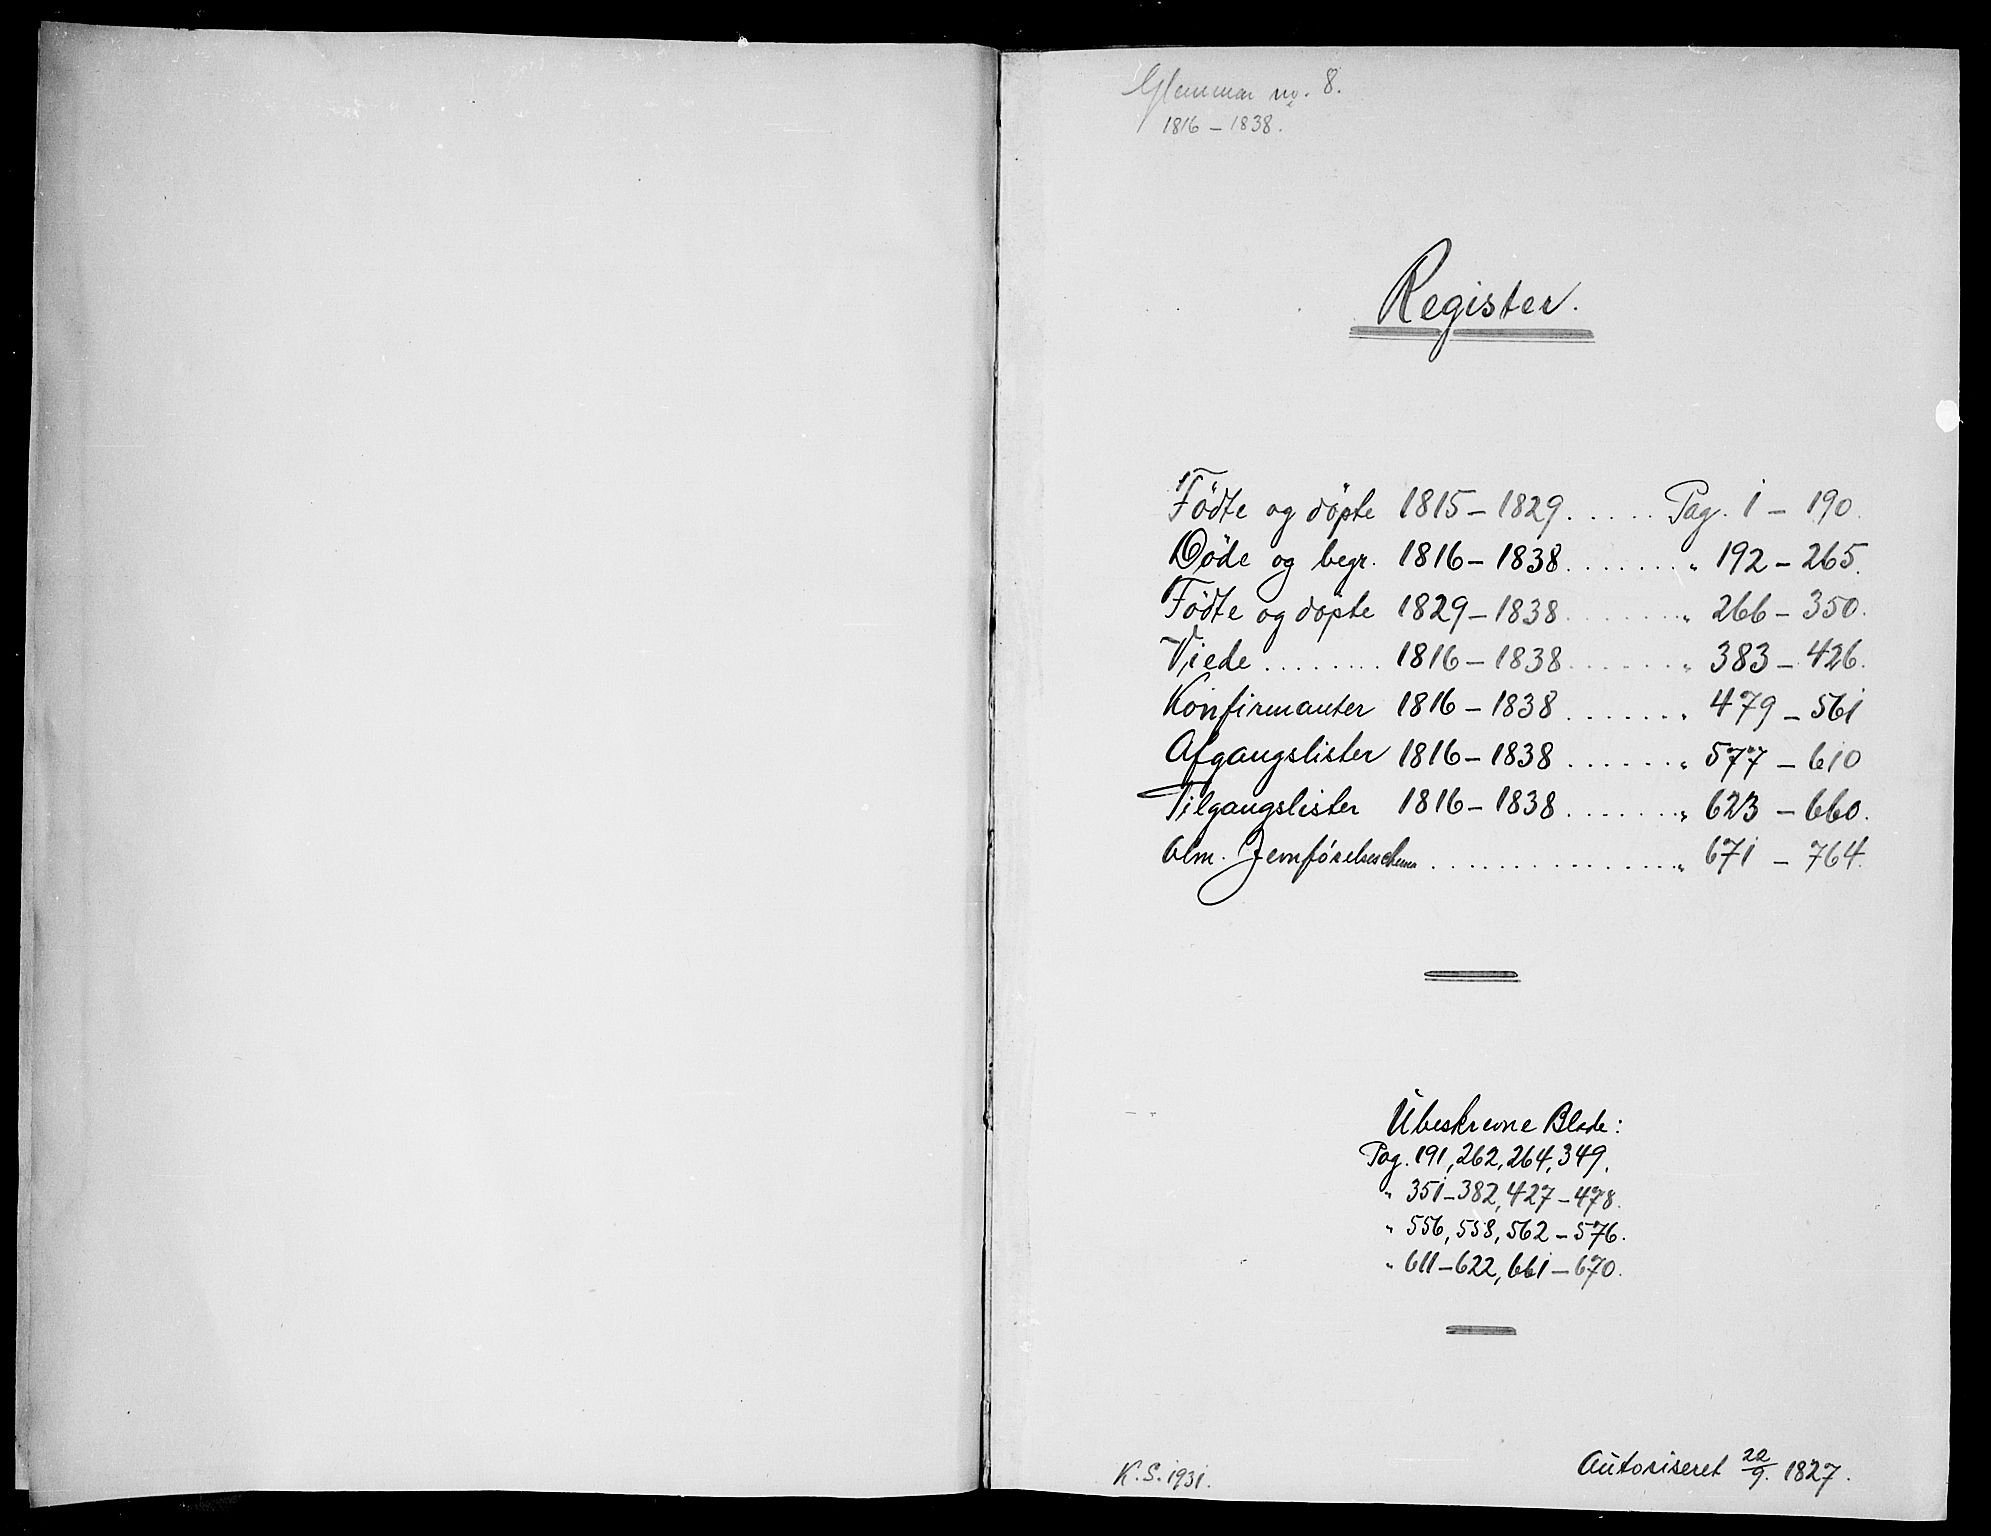 Glemmen no. 8.
1816 – 1838.
Register.
Födte og döpte 1815 – 1829 ..... Pag. 1 – 190.
Döde og begr. 1816 – 1838 ....... " 192 – 265.
Födte og döpte 1829 – 1838 ....... " 266 – 350.
Viede ........ 1816 – 1838 ....... " 383 – 426.
Konfirmanter 1816 – 1838 ....... " 479 – 561
Afgangslister 1816 – 1838 ...... " 577 – 610
Tilgangslister 1816 – 1838 ....... " 623 – 660.
Alm. Jemførelseschema ................ " 671 – 764.
Ubeskrevne Blade:
Pag. 191, 262, 264, 349.
" 351 – 382, 427 – 478.
" 556, 558, 562 – 576.
" 611 – 622, 661 – 670.
K. S. 1931.
Autoriseret 22/9. 1827.